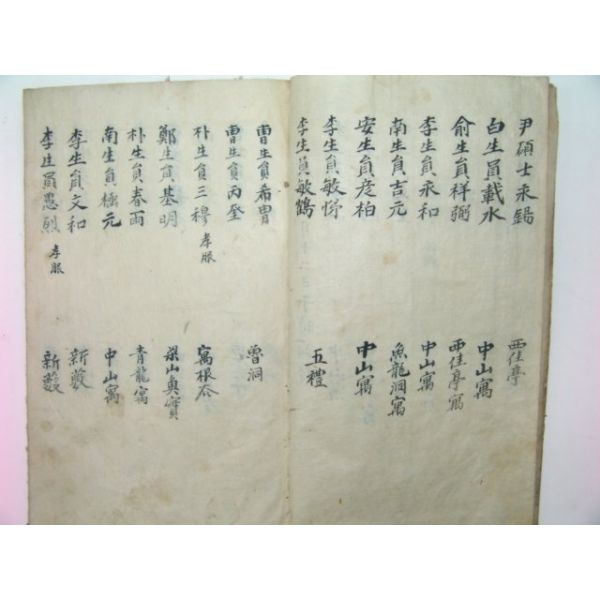 尹碩士来錫 西佳亭
白生員載水 中山寓
俞生員祥弼 西佳亭寓
李生員永和 中山寓
南生員吉元 魚龍洞寓
安生員彦柏 中山寓
李生員敏悌
李生員敏鶴 五禮
曺生員希胄 曺洞
曺生員丙奎
朴生員三穆 孝服 寓根谷
鄭生員基明 梁山奥寶
朴生員春雨 青龍寓
南生員極元 中山寓
李生員文和 新藪
李生員愚烈 孝服 新藪